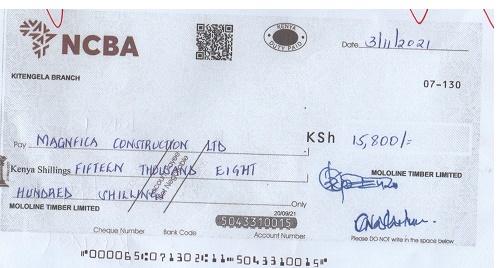 NCBA
KENYA
DUTY PAID
Date 3/11/2021
KITENGELA BRANCH
07-130
Pay MAGNFICA CONSTRUCTION LTD KSh 15,800/=
Kenya Shillings FIFTEEN THOUSAND EIGHT
HUNDRED SHILLING Only
MOLOLINE TIMBER LIMITED
MOLOLINE TIMBER LIMITED
20/09/21
5043310015
Cheque Number Bank Code Account Number
Please DO NOT write in the space below
"000065:071302:11 5043310015"